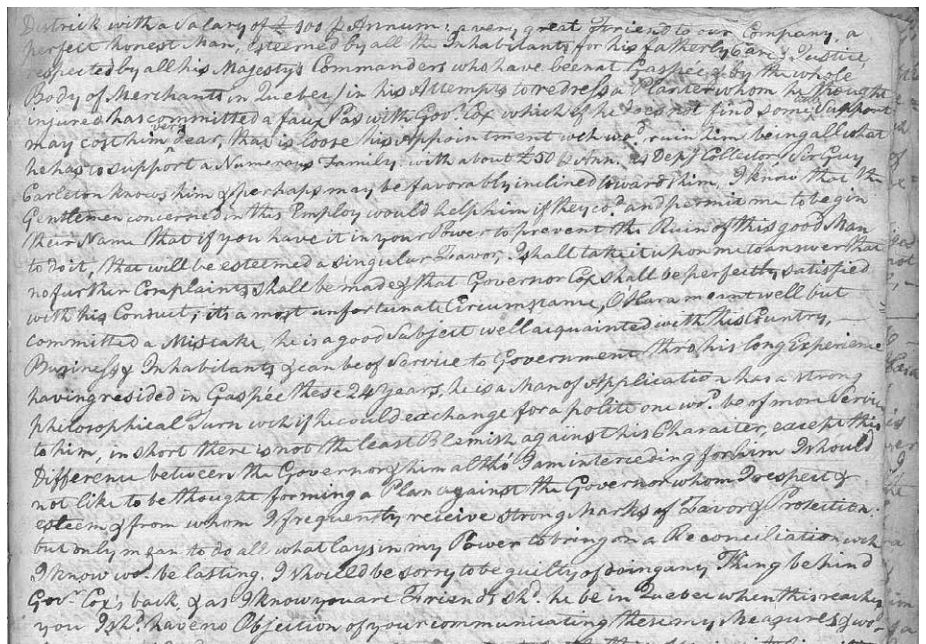 District with a Salary of £ 100 p Annum; a very great Friend to our Company, a
perfect honest Man, esteemed by all the Inhabitants for his fatherly Care & Justice,
respected by all his Majesty's Commanders who have been at Gaspée & by the whole
Body of Merchants in Quebec, in his Attempts to redress a Planter whom he thought
injured has committed a faux Pas with Govr. Cox which if he does not find some Support
may cost him very dear, that is loose his Appointment wch wod. ruin him, being all what
he has to support a Numerous Family with about £50 p Ann. as Depy Collector, Sir Guy
Carleton knows him & perhaps may be favorably inclined towards him, I know that the
Gentlemen concerned in this Employ would help him if they cod. and permit me to beg in
their Name that if you have it in your Power to prevent the Ruin of this good Man
to do it, that will be esteemed a singular Favor, I shall take it upon me to answer that
no further Complaints shall be made & that Governor Cox shall be perfectly satisfied
with his Conduct; its a most unfortunate Circumstance, O'Hara meant well but
committed a Mistake, he is a good Subject well acquainted with this Country,
Business & Inhabitants & can be of Service to Government thro his long Experience
having resided in Gaspée these 24 years, he is a Man of Application has a strong
philosophical Turn wch if he could exchange for a polite one wod. be of more Service
to him, in short there is not the least Blemish against his Character, except this
Difference between the Governor & him altho' I am interceding for him I should
not like to be thought forming a Plan against the Governor whom I respect &
esteem & from whom I frequently receive strong Marks of Favor & Protection.
but only mean to do all what lays in my Power to bring on a Reconciliation wch
I know wod. be lasting. I should be sorry to be guilty of doing any Thing behind
Govr. Cox's back, & as I know you are Friends shd. he be in Quebec when this reaches
you I shd. have no Objection of your communicating these my Measures & wo